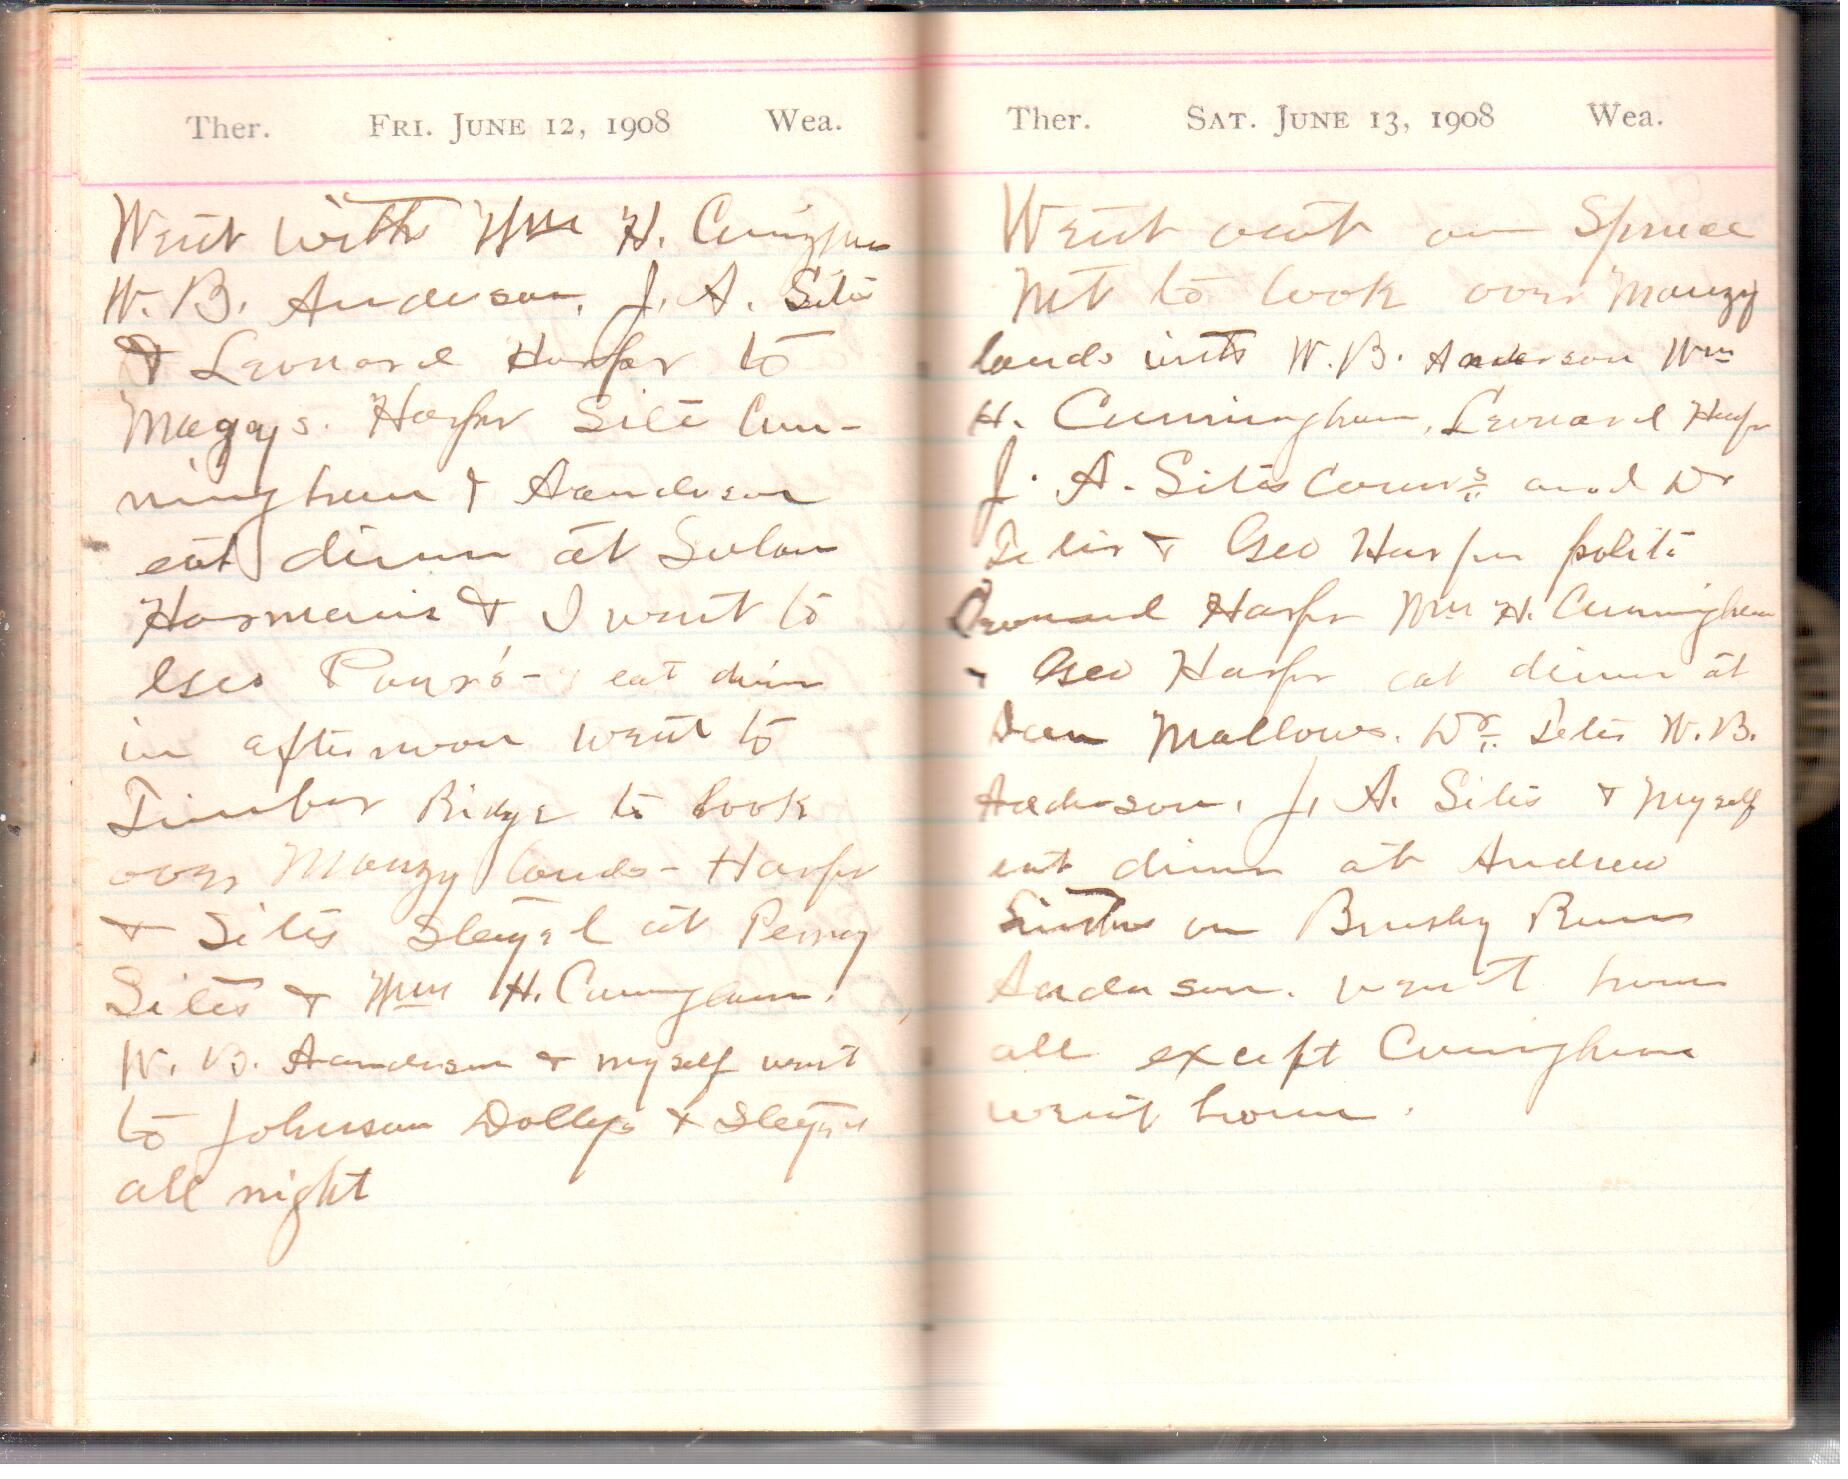 Ther. FRI. JUNE 12, 1908 Wea.
Went with Wm H. Cuningham
W. B. Anderson, J. A. Sites
& Leonard Harper to
Harper Sites Cun-
ningham & Aanderson
eat dinner at Solon
Harmans & I went to
Geo eat dinner
in afternoon went to
Timber Ridge to look
over Mouzy lands - Harper
& Sites Stayed at Perry
Sites & Wm H. Cuningham.
W. B. Aanderson & myself went
to Johnson Dollys & Stayed
all night
Ther. SAT. JUNE 13, 1908 Wea.
Went out on Spruce
Mt to look over Mouzy
lands with W. B. Anderson Wm
H. Cunningham, Leonard Harper
J. A. Sites and Dr
& Geo Harper
Leonard Harper Wm H. Cunningham
Geo Harper eat dinner at
Mallows. Dr. W. B.
Anderson. J. A. Sites & Myself
eat dinner at Andrew
on Brushy Run
Anderson. went home
all except Cuningham
went home.